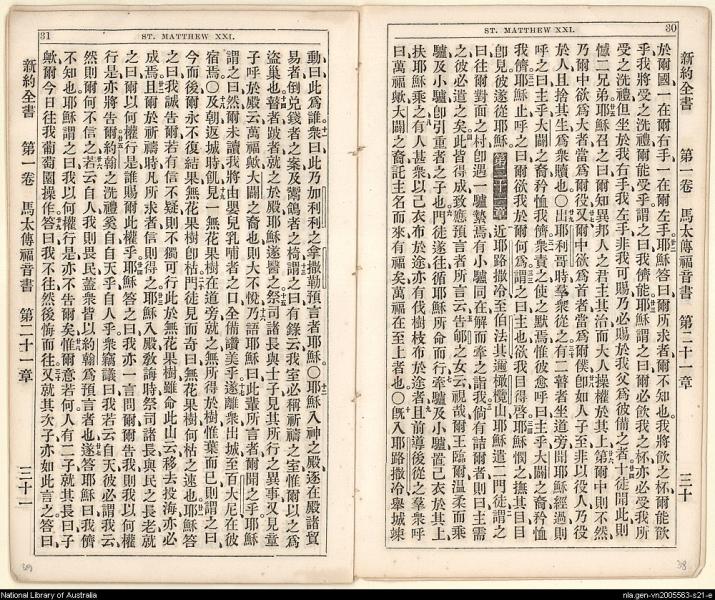 ST. MATTHEW XXI.
30
新約全書 第一卷 馬太傳福音書 第二十一章 三十
於爾國一在爾右手一在爾左手耶穌答曰爾所求者爾不知也我將飲之杯爾能飲
乎我將受之洗禮爾能受乎謂之曰我儕能耶穌謂之曰爾必飲我之杯亦必受我所
受之洗禮但坐於我右手我左手非我可賜乃必賜於我父為彼備之者十徒聞此則
憾二兄弟耶穌召之曰爾知異邦人之君主其治而大人操權於其上第爾中則不然
乃爾中欲為大者當為爾役又爾中欲為首者當為爾僕卽如人子至非以役人乃役
於人且捨其生為衆贖也○出耶利哥時羣衆從之有二瞽者坐道旁聞耶穌經過則
呼之曰主乎大闢之裔矜恤我儕衆責之使之默焉惟彼愈呼曰主乎大闢之裔矜恤
我儕耶穌止呼之曰爾欲我於爾何為謂之曰主也欲我目得啓耶穌憫之撫其目目
卽見彼遂從耶穌 第二十一章 近耶路撒冷至伯法其邇橄欖山耶穌遣二門徒謂之
曰往爾對面之村卽遇一驢縶焉有小驢同在解而牽之詣我倘有詰爾者則曰主需
之彼必遣之矣此皆得成致應預言者所言云告郇之女云視哉爾王臨爾温柔而乘
驢及小驢卽引重者之子也門徒遂往循耶穌所命而行牽驢及小驢置己衣於其上
扶耶穌乘之有人甚衆以己衣布於途亦有伐樹枝布於途者且前導後從之羣衆呼
曰萬福歟大闢之裔託主名而來有福矣萬福在至上者也○既入耶路撒冷舉城竦
38
31
ST. MATTHEW XXI.
動曰此為誰衆曰此乃加利利之拿撒勒預言者耶穌○耶穌入神之殿逐在殿諸貿
易者倒兌錢者之案及鬻鴿者之椅謂之曰有錄云我室必稱祈禱之室惟爾以之為
盜巢也瞽者跛者就之於殿耶穌遂醫之祭司諸長與士子見其所行之異事又見童
子呼於殿云萬福歟大闢之裔也則大不悅乃語耶穌曰此輩所言者爾聞之乎耶穌
謂之曰然爾未讀我將由嬰兒乳哺者之口全備讚美乎遂離衆出城至百大尼在彼
宿焉○及朝返城時飢見一無花果樹在道旁就之無所得於樹惟葉而已則謂之曰
今而後爾永不復結果無花果樹卽枯門徒見而奇曰無花果樹何枯之速也耶穌答
之曰我誠告爾若有信不疑則不獨可行此於無花果樹雖命此山云移去投海亦必
成焉且爾於祈禱時凡所求者信則得之耶穌入殿敎誨時祭司諸長與民之長老就
之曰爾以何權行是誰賜爾此權乎耶穌答之曰我亦一言問爾爾告我則我以何權
行是亦將告爾約翰之洗禮奚自自天乎自人乎衆竊議曰我若云自天彼必謂我云
然則爾何不信之若云自人我則畏民蓋衆皆以約翰為預言者也遂答耶穌曰我儕
不知也耶穌謂之曰我以何權行是亦不告爾矣惟爾意若何人有二子就其長曰子
歟爾今日往我葡萄園操作答曰我不往然後悔而往又就其次子亦如此言之答曰
新約全書 第一卷 馬太傳福音書 第二十一章 三十一
39
National Library of Australia
nla.gen-vn2005563-s21-e